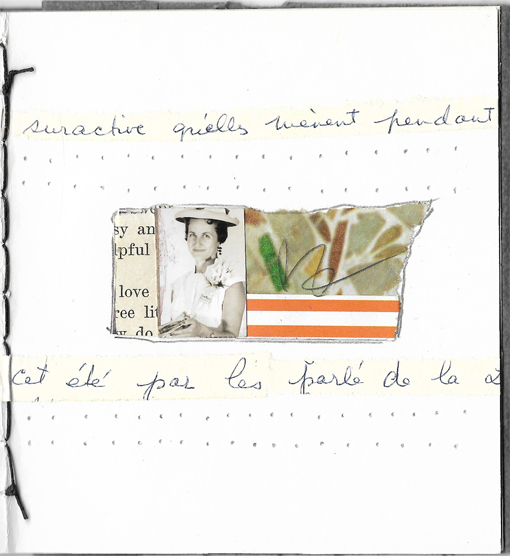 suractive qu'elles mènent pendant
sy an
lpful
love
ree lit
y do
cet été par les parlé de la